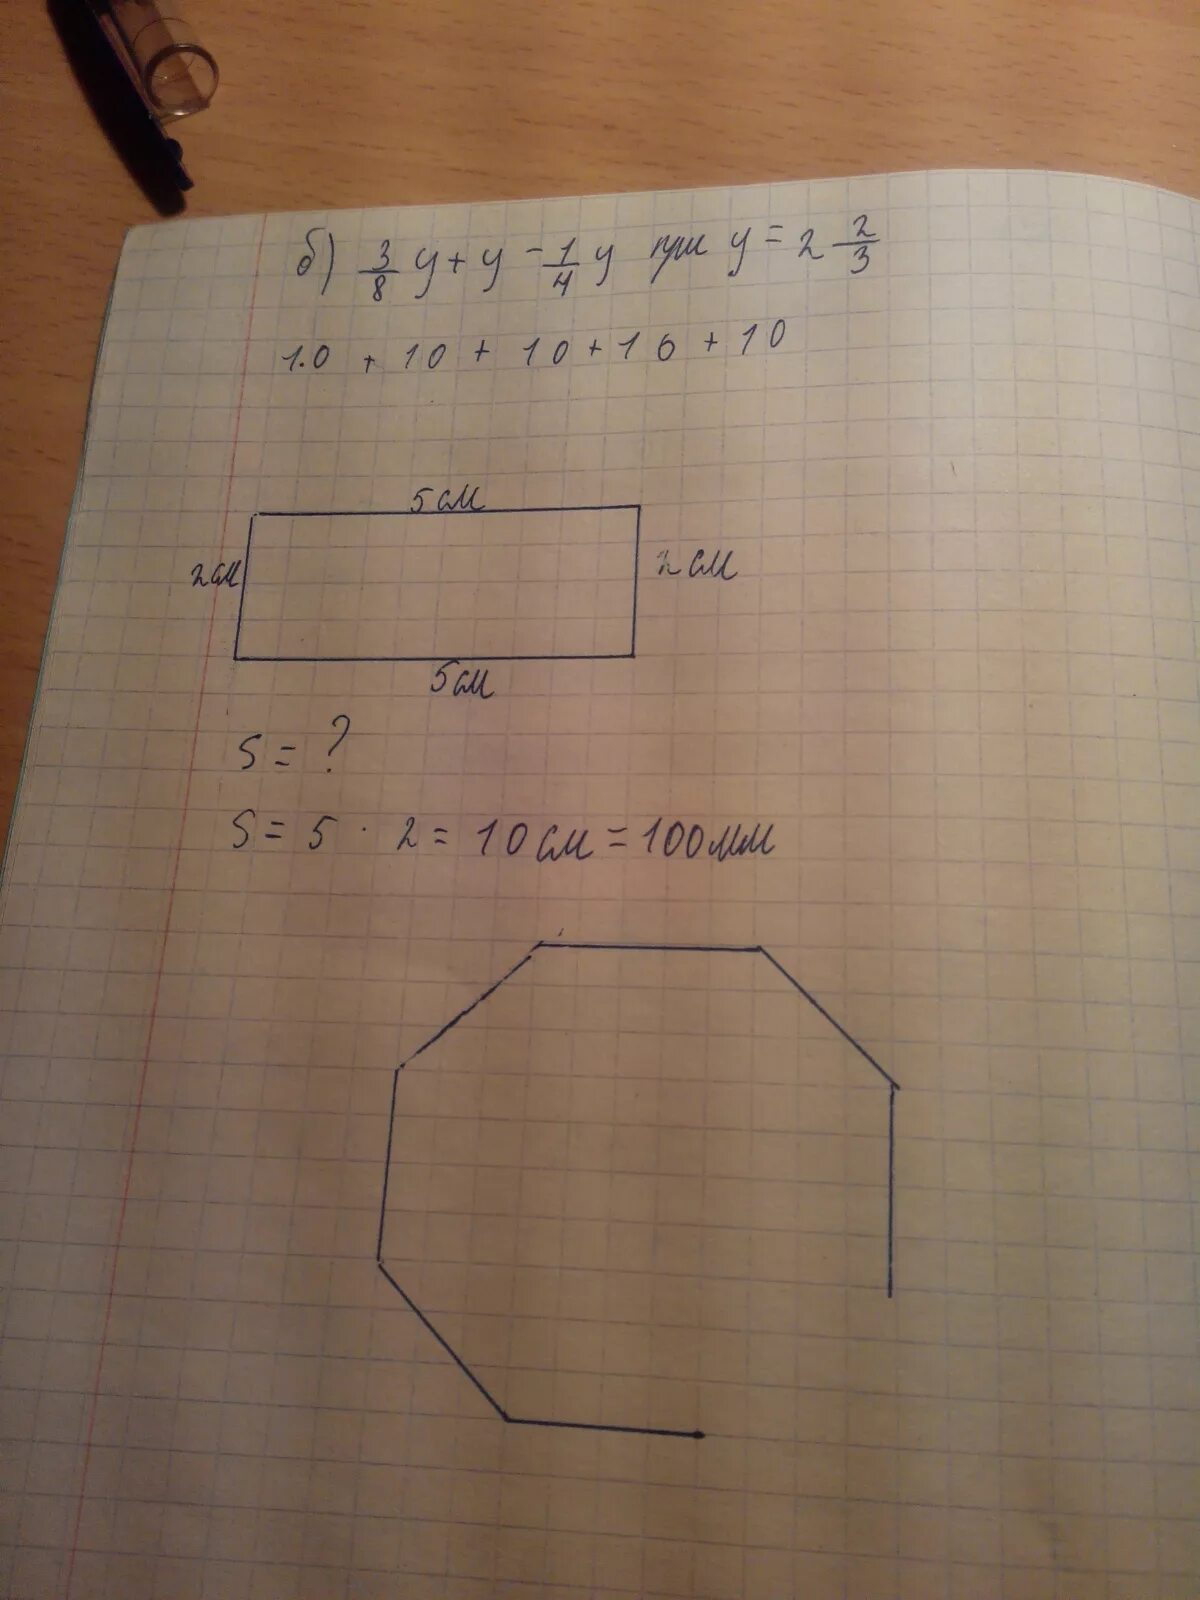 б) 3/8 y + y - 1/4 y при y = 2 2/3
1.0 + 10 + 10 + 10 + 10
5 см
2 см 2 см
5 см
S = ?
S = 5 · 2 = 10 см = 100 мм